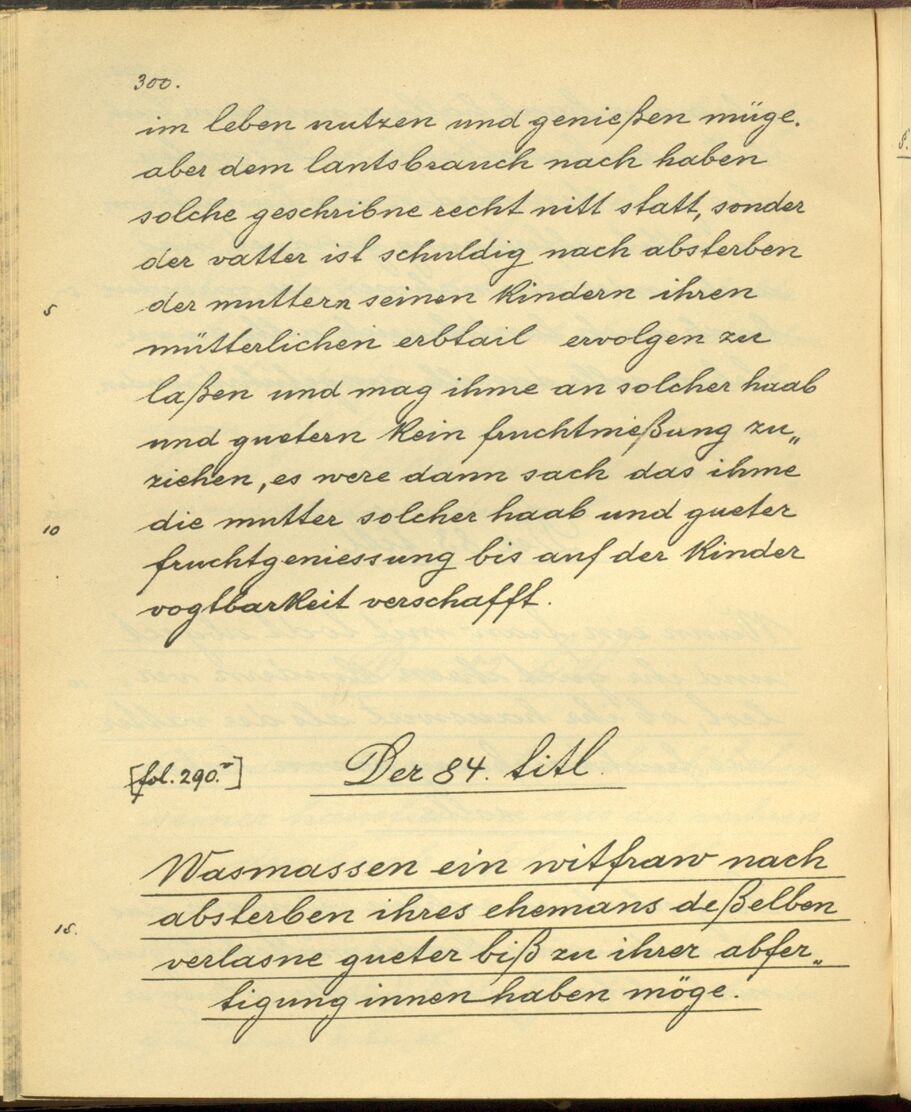 300.
im leben nutzen und genießen müge.
aber dem lantsbrauch nach haben
solche geschribne recht nitt statt, sonder
der vatter ist schuldig nach absterben
5 der muttern seinen kindern ihren
mütterlichen erbtail ervolgen zu
laßen und mag ihme an solcher haab
und guetern kein fruchtnießung zu„
ziehen, es were dann sach das ihme
10 die mutter solcher haab und gueter
fruchtgeniessung bis auf der kinder
vogtbarkeit verschafft.
[fol. 290.v] Der 84. titl.
Wasmassen ein witfraw nach
15. absterben ihres ehemans deßelben
verlasne gueter biß zu ihrer abfer„
tigung innen haben möge.